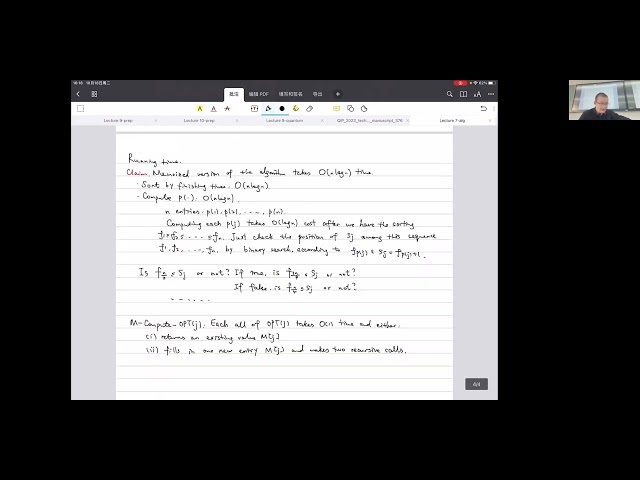 10月18日周二
62%
批注
编辑 PDF
填写和签名
导出
Lecture 9-prep
Lecture 10-prep
Lecture 8-quantum
Lecture 7-alg
Running time.
Claim. Memorized version of the algorithm takes O(nlogn) time.
· Sort by finishing time: O(nlogn)
· Compute p(·): O(nlogn).
n entries: p(1), p(2), ....., p(n).
Computing each p(j) takes O(logn) cost after we have the sorting
f1≤f2≤ ---- ≤fn. Just check the position of Sj among this sequence
f1, f2, ...., fn by binary search, according to fp(j) ≤ Sj < fp(j)+1.
Is fn/2 ≤ Sj or not? If true, is f3n/4 ≤ Sj or not?
If false, is fn/4 ≤ Sj or not?
------
M-Compute-OPT(j): Each call of OPT(j) takes O(1) time and either.
(i) returns an existing value M[j]
(ii) fills in one new entry M[j] and makes two recursive calls.
4/4